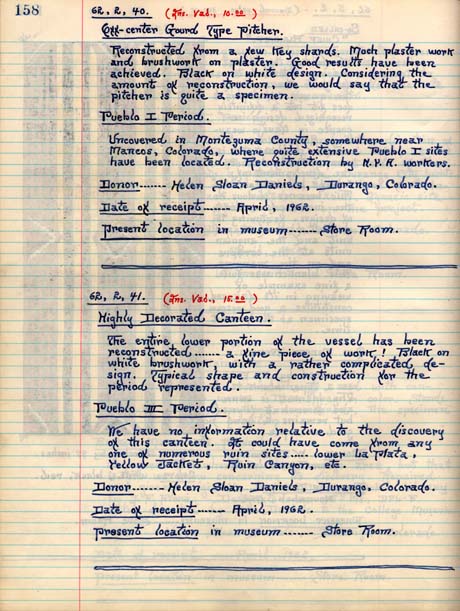 158
62, 2, 40. (Ins. Val., 10.00)
Off-center Gourd Type Pitcher.
Reconstructed from a few key shards. Much plaster work
and brushwork on plaster. Good results have been
achieved. Black on white design. Considering the
amount of reconstruction, we would say that the
pitcher is quite a specimen.
Pueblo I Period.
Uncovered in Montezuma County, somewhere near
Mancos, Colorado, where quite extensive Pueblo I sites
have been located. Reconstruction by N.Y.A. workers.
Donor------- Helen Sloan Daniels, Durango, Colorado.
Date of receipt------- April, 1962.
Present location in museum------- Store Room.
62, 2, 41. (Ins. Val., 15.00)
Highly Decorated Canteen.
The entire lower portion of the vessel has been
reconstructed------- a fine piece of work! Black on
white brushwork with a rather complicated de-
sign. Typical shape and construction for the
period represented.
Pueblo III Period.
We have no information relative to the discovery
of this canteen. It could have come from any
one of numerous ruin sites---- lower La Plata,
Yellow Jacket, Ruin Canyon, etc.
Donor------- Helen Sloan Daniels, Durango, Colorado.
Date of receipt------- April, 1962.
Present location in museum------- Store Room.